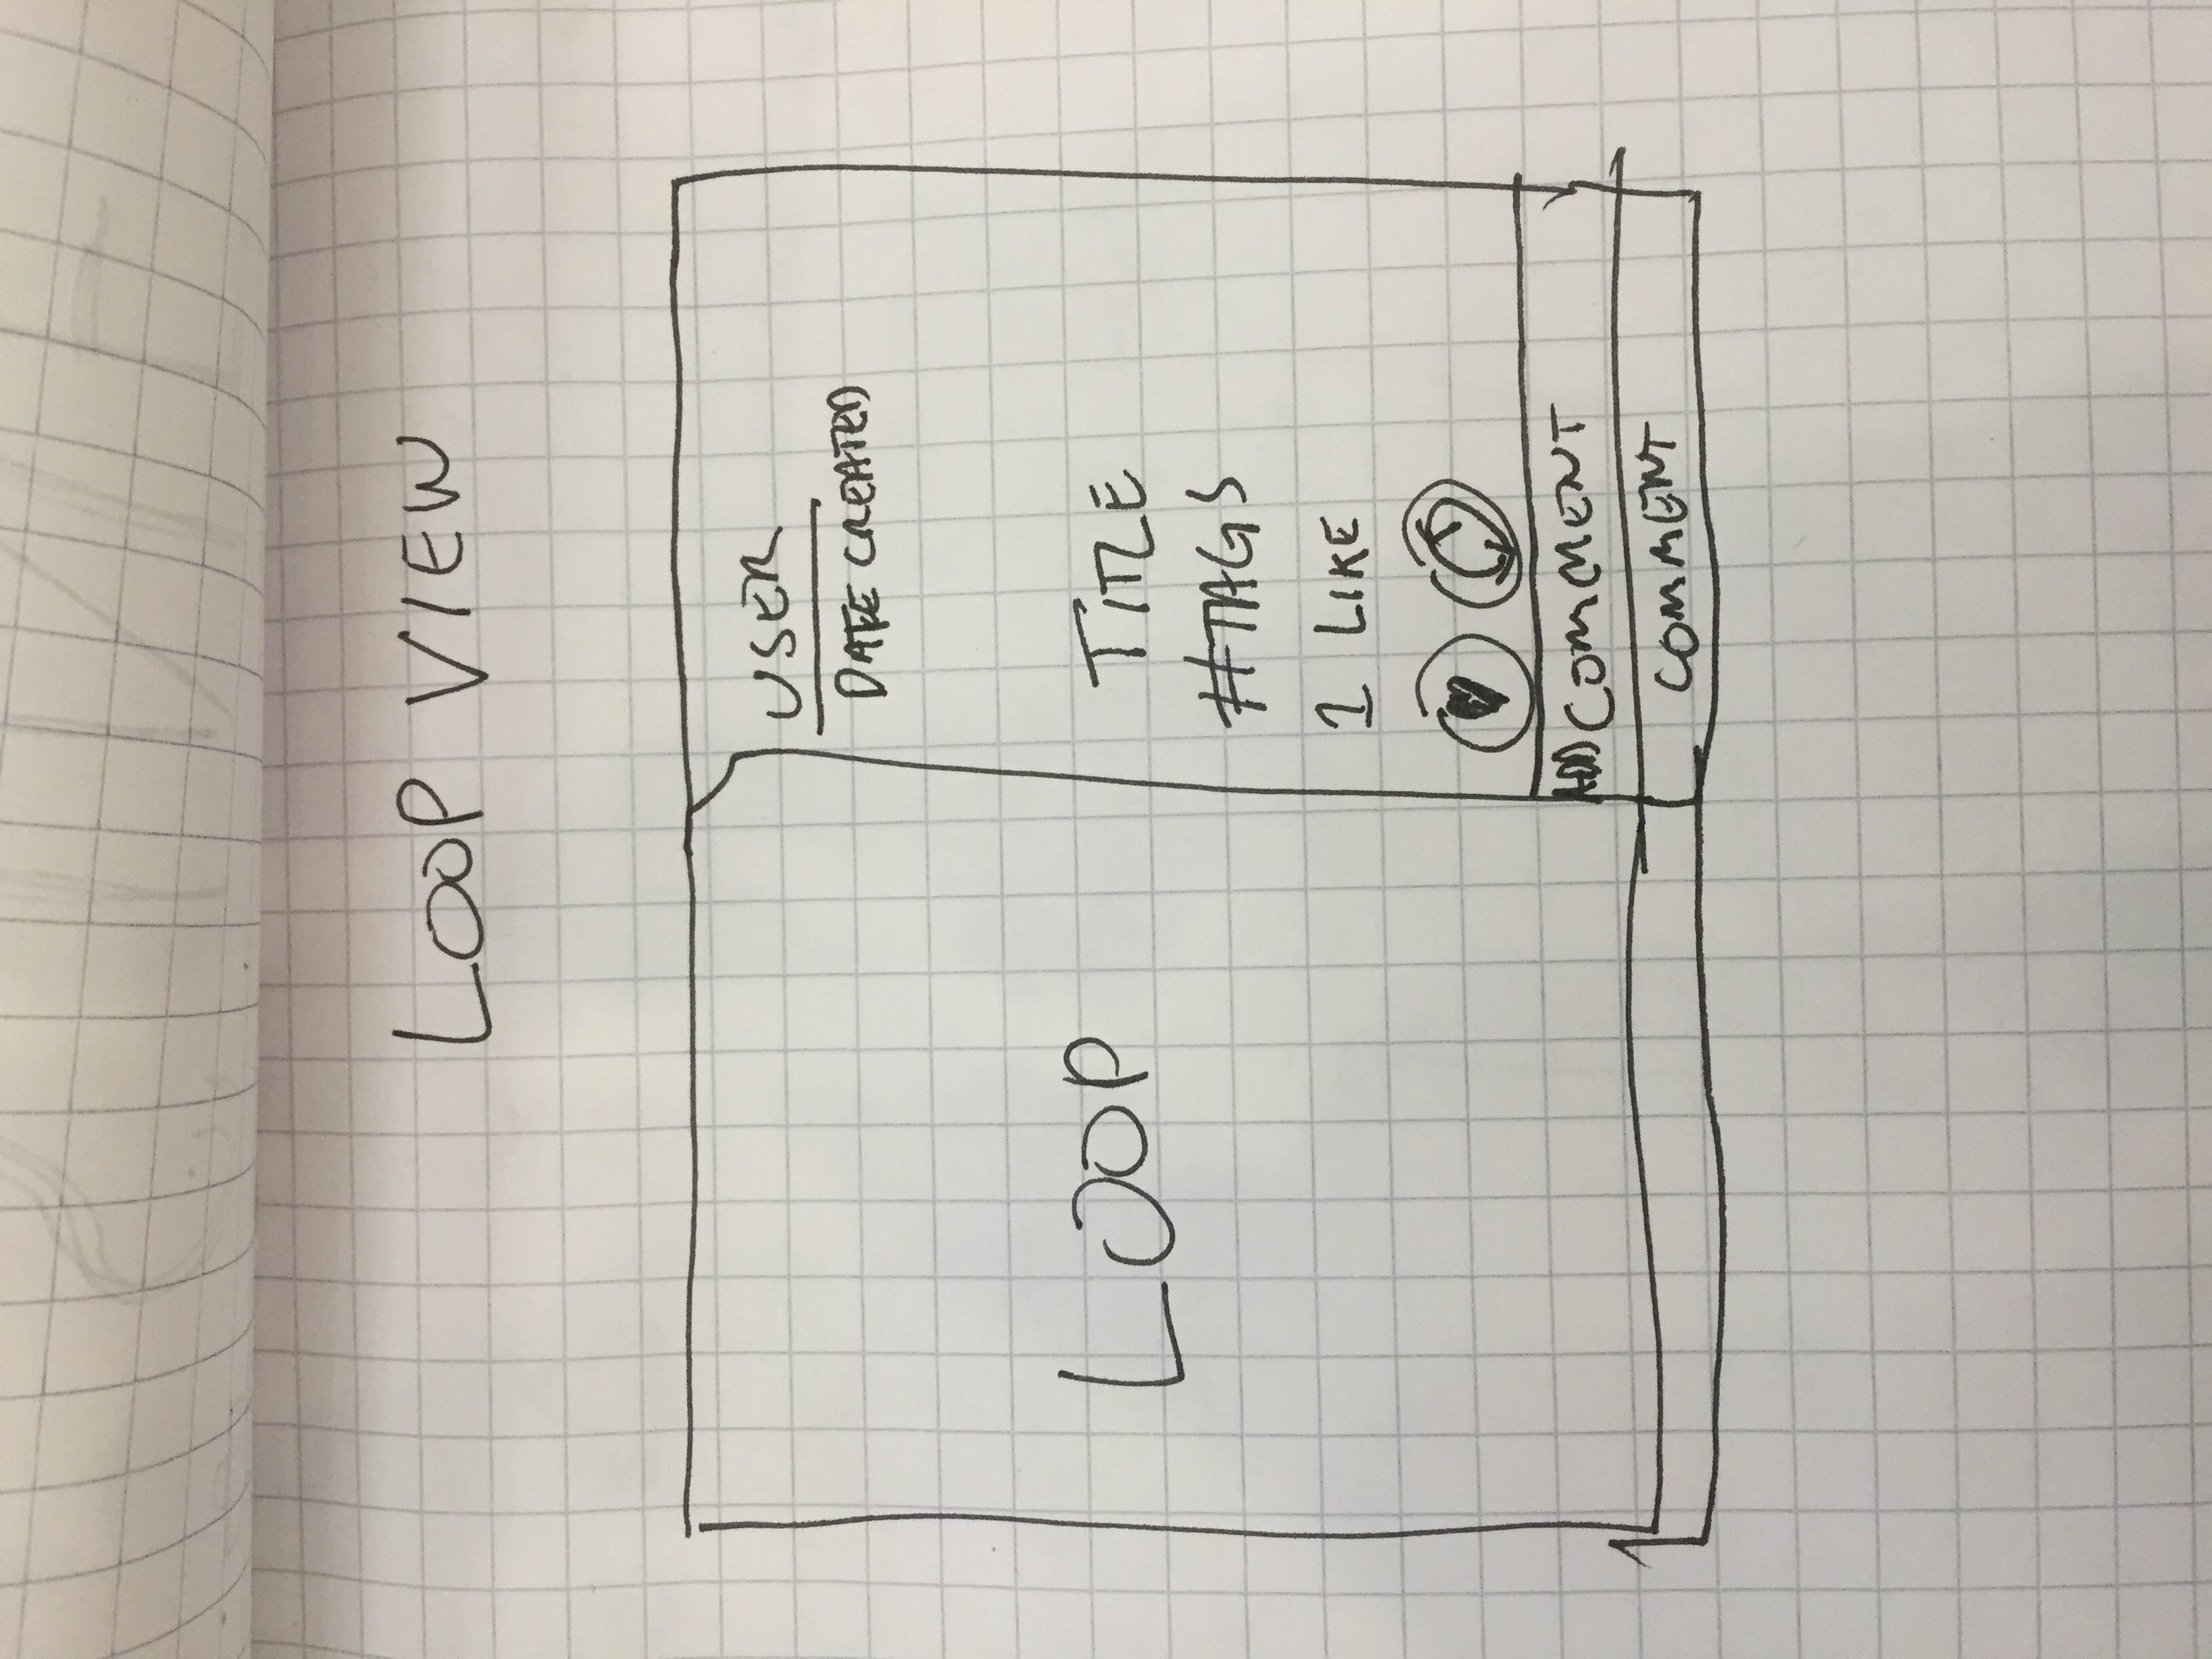 LOOP VIEW
LOOP
USER
DATE CREATED
TITLE
#TAGS
1 LIKE
ADD COMMENT
COMMENT